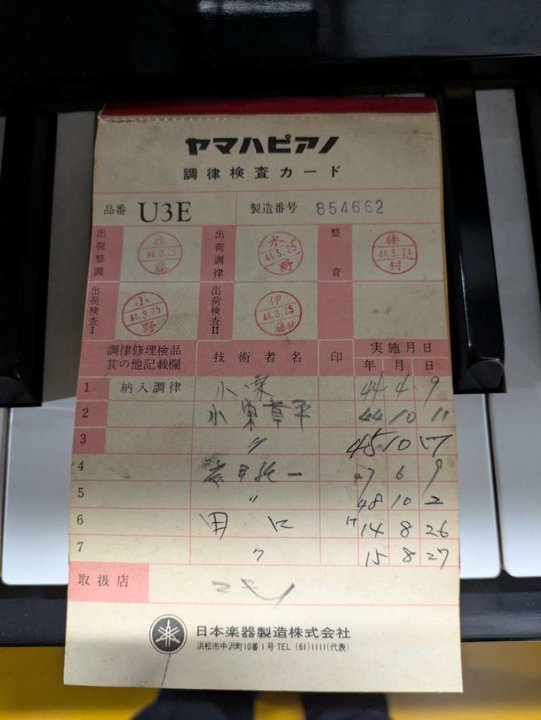 ヤマハピアノ
調律検査カード
品番 U3E 製造番号 854662
出荷整調 佐藤 44.3.25 出荷調律 水野 44.3.25 整音 44.3.24
出荷検査I 小野 44.3.25 出荷検査II 伊藤 44.3.25
調律修理検品其の他記載欄 技術者名 印 実施月日
年 月 日
1 納入調律 小栗 44 4 9
2 小栗章平 44 10 11
3 〃 45 10 17
4 一 47 6 9
5 〃 48 10 2
6 14 8 26
7 〃 15 8 27
取扱店
日本楽器製造株式会社
浜松市中沢町10番1号TEL (61)1111(代表)